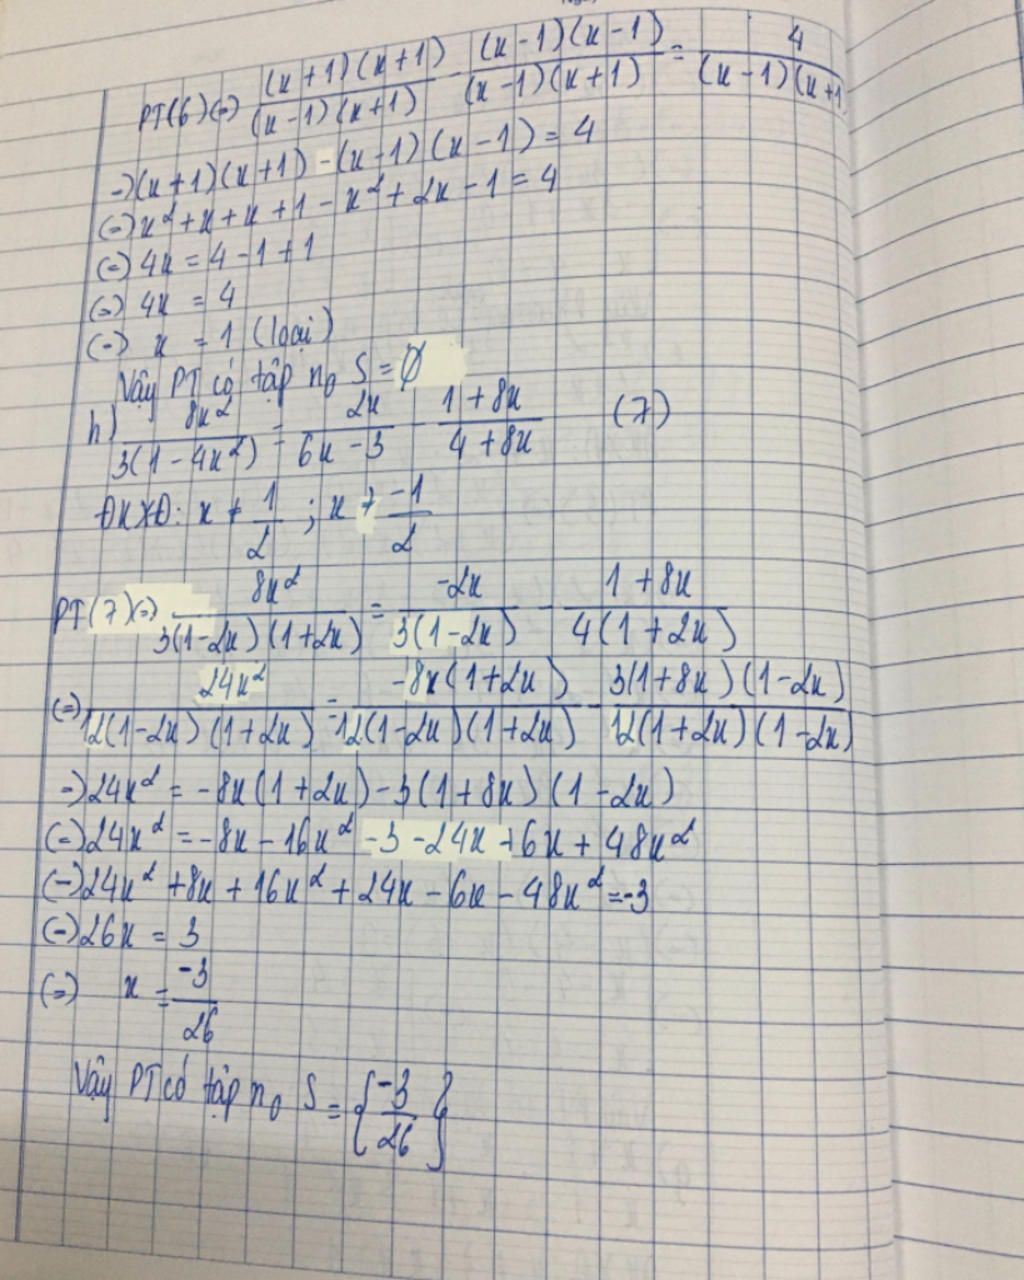 PT(6)(=) (x+1)(x+1)/(x-1)(x+1) - (x-1)(x-1)/(x-1)(x+1) = 4/(x-1)(x+1)
=>(x+1)(x+1) - (x-1)(x-1) = 4
(=) x²+x+x+1-x²+2x-1=4
(=) 4x = 4-1+1
(=) 4x = 4
(=) x = 1 (loại)
Vậy PT có tập n₀ S = Ø
h) 8x²/3(1-4x²) = 2x/6x-3 - 1+8x/4+8x (7)
ĐKXĐ: x ≠ 1/2 ; x ≠ -1/2
PT(7)(=) 8x²/3(1-2x)(1+2x) = -2x/3(1-2x) - 1+8x/4(1+2x)
(=) 24x²/12(1-2x)(1+2x) = -8x(1+2x)/12(1-2x)(1+2x) - 3(1+8x)(1-2x)/12(1+2x)(1-2x)
=>24x² = -8x(1+2x)-3(1+8x)(1-2x)
(=)24x² = -8x-16x²-3-24x+6x+48x²
(=)24x²+8x+16x²+24x-6x-48x²=-3
(=)26x = 3
(=) x = -3/26
Vậy PT có tập n₀ S = {-3/26}